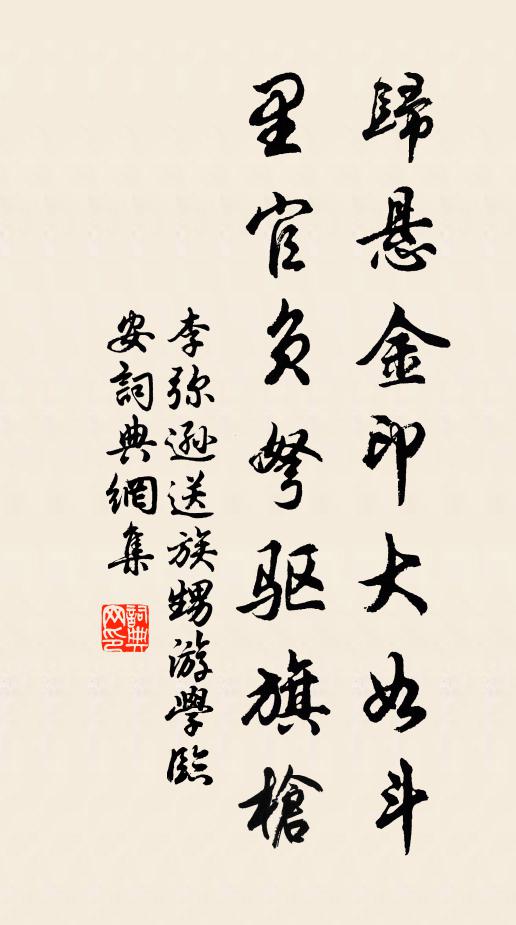 歸悬金印大如斗
里官負弩驱旗槍
李弥遜送族甥游學臨
安詞典網集
詞典
网印